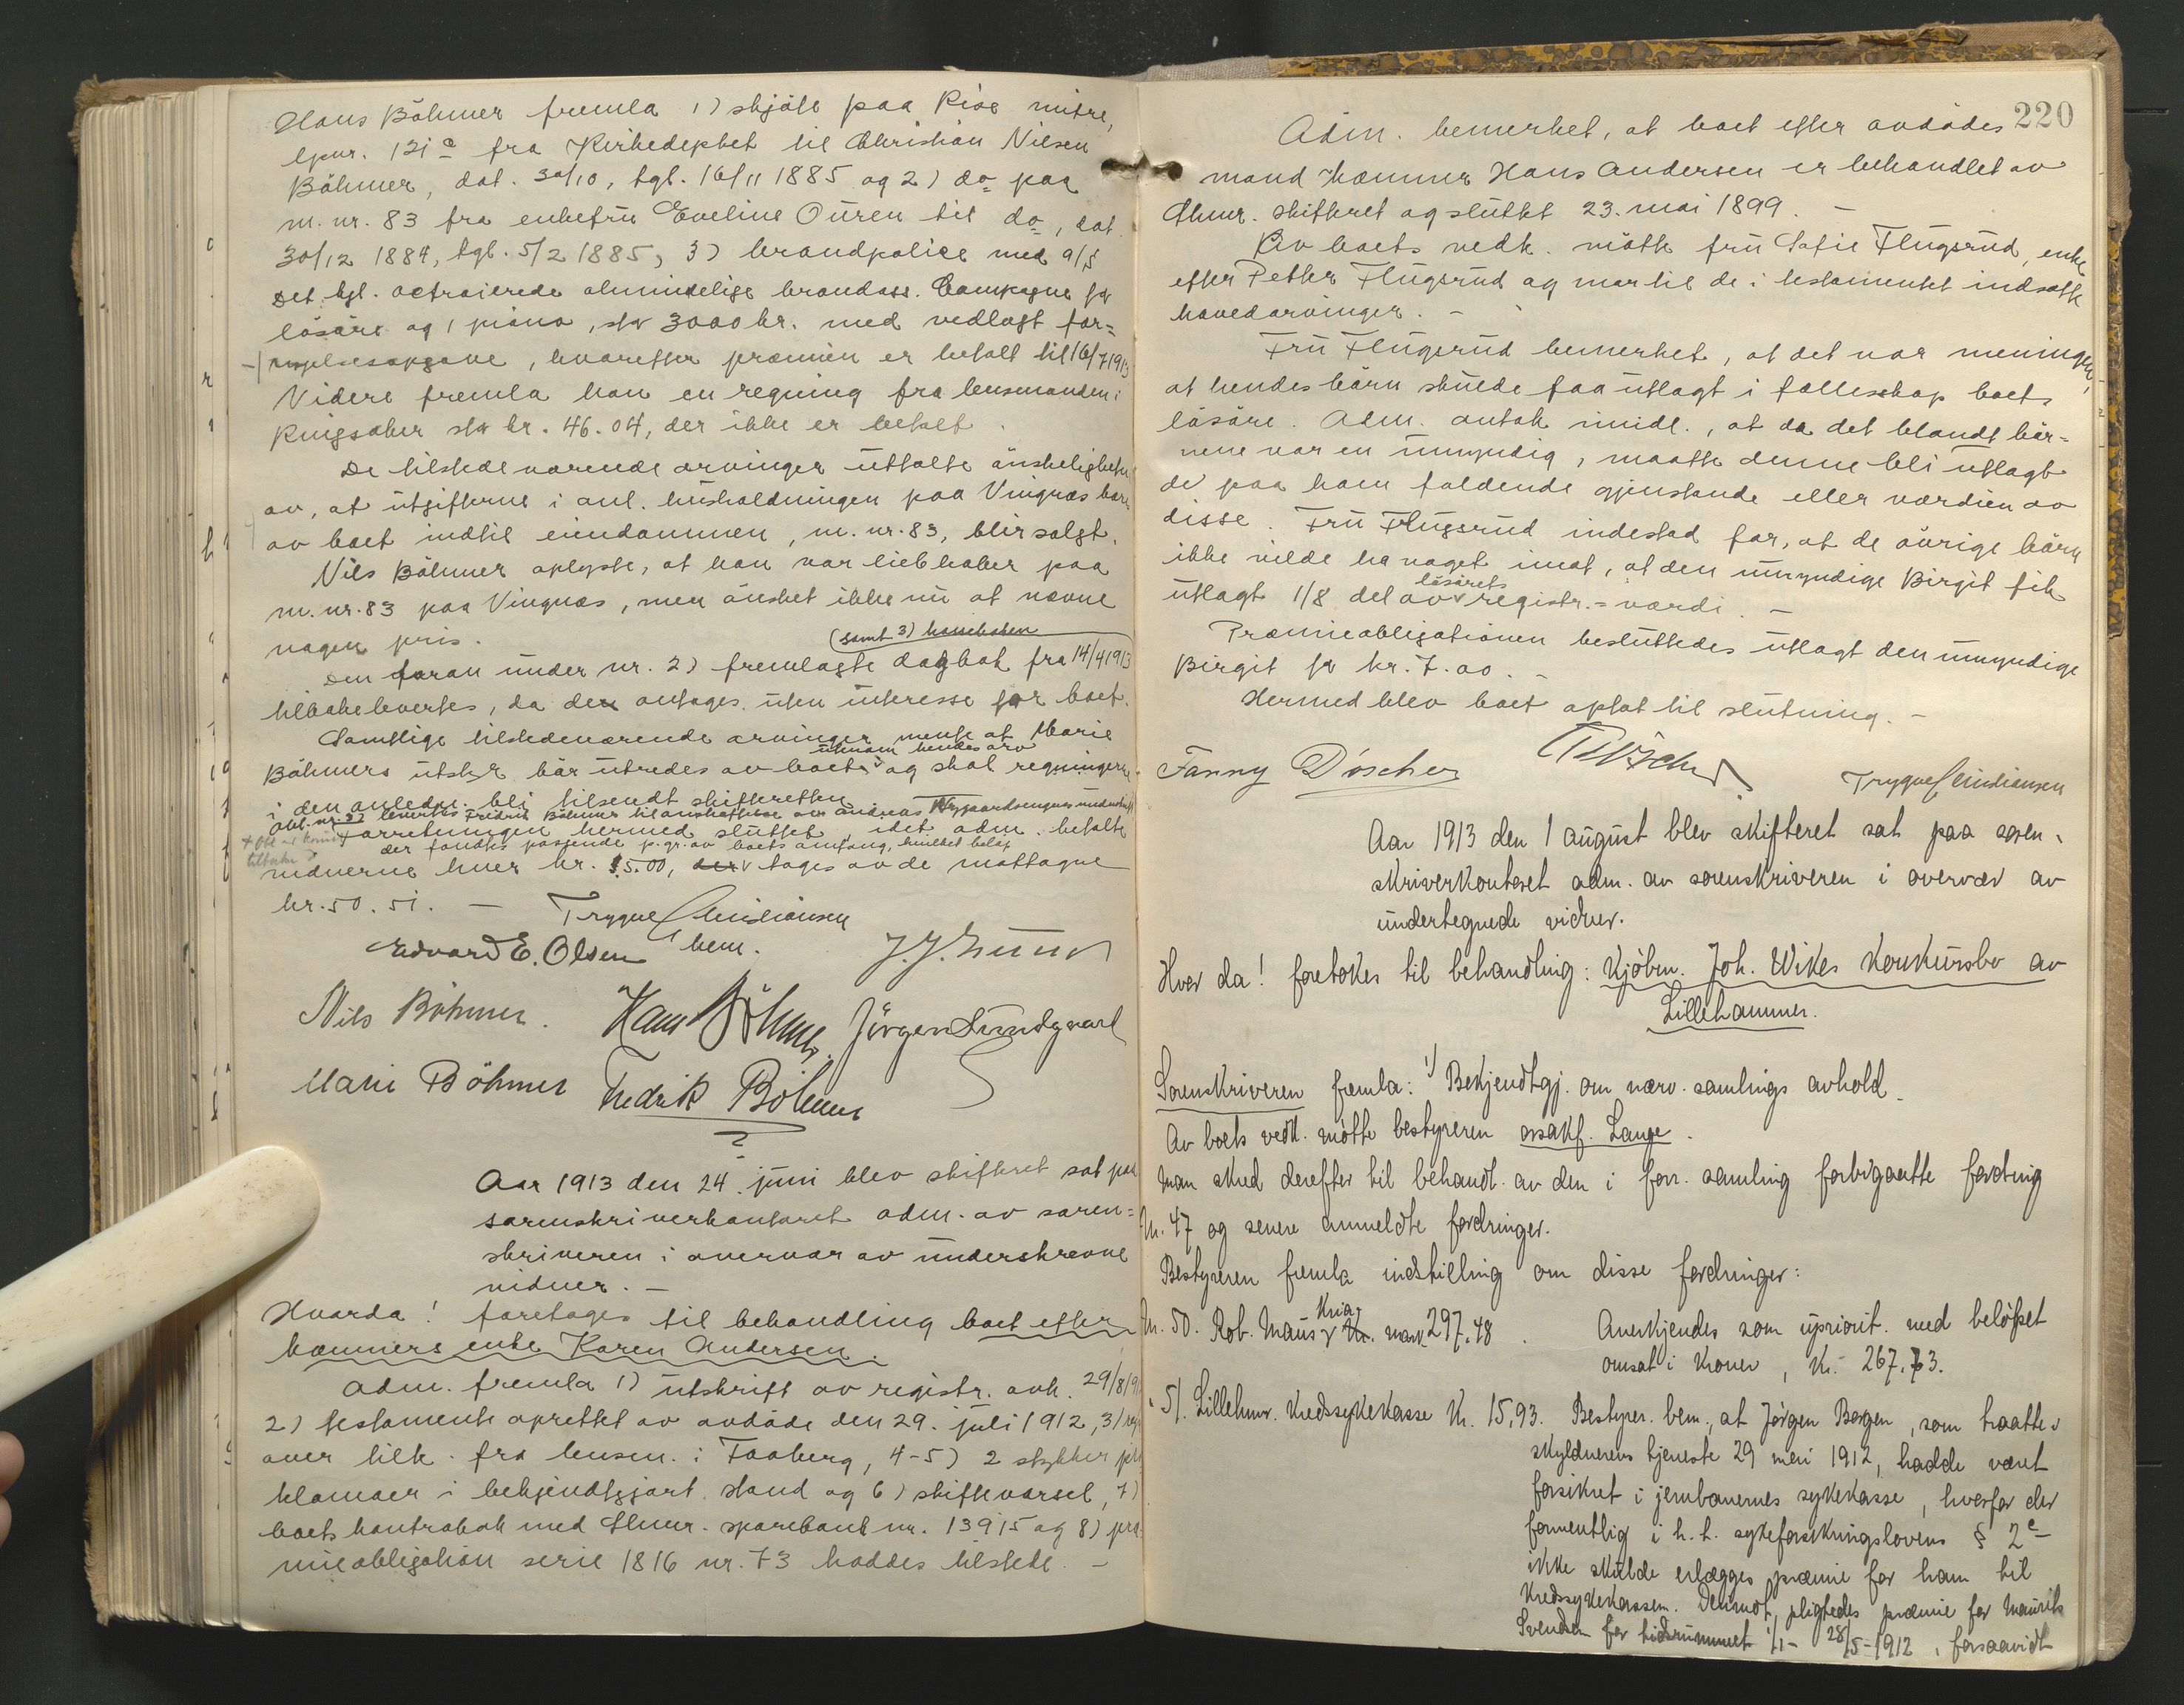 Hans Böhmer fremla 1) skjöte paa Rise mitre,
lpnr. 121 a fra Kirkedeptet til Christian Nilsen
Böhmer, dat. 30/10, tgl. 16/11 1885 og 2) do paa
m. nr. 83 fra enkefru Eveline Ouren til do, dat.
30/12 1884, tgl. 5/2 1885, 3) brandpolice med a/s
Det kgl. octroierede almindelige brandass. Compagne for
lösöre og 1 piano, stor 3000 kr. med vedlagt for=
nyelsesopgave, hvorefter præmien er betalt til 16/7 1913
Videre fremla han en regning fra lensmanden i
Ringsaker stor kr. 46.04, der ikke er betalt.
De tilstedeværende arvinger uttalte önskeligheten
av, at utgifterne i anl. husholdningen paa Vingnæs bæres
av boet indtil eiendommen, m. nr. 83, blir solgt.
Nils Böhmer oplyste, at han var liebhaber paa
m. nr. 83 paa Vingnæs, men önsket ikke nu at nævne
nogen pris.
(samt 3) kasseboken
Den foran under nr. 2) fremlagte dagbok fra 14/4 1913
tilbakeleverkes, da den antages uten interesse for boet.
Samtlige tilstedeværende arvinger mente at Marie
utenom hendes arv
Böhmers utstyr bör utredes av boet og skal regningerne
i den anledn. bli tilsendt skifteretten
Obl. nr. 32 leverkes Fridrik Böhmer til anskaffelse av Andreas underskrift
+ Obl er kommet tilbake
Forretningen hermed sluttet, idet adm. betalte
der fandtes passende p. gr. av boets omfang, hvilket belöp
vidnerne hver kr. 5.00, tages av de mottagne
kr. 50.51. —
Trygve Christiansen
Edvard E. Olsen
bem.
J. J. Lund
Nils Böhmer.
Hans Böhmer.
Jörgen Lundgaard
Marie Böhmer
Fredrik Böhmer
Aar 1913 den 24. juni blev skifteret sat paa
sorenskriverkontoret adm. av soren=
skriveren i overvær av underskrevne
vidner. —
Hvorda! foretoges til behandling boet efter
kæmners enke Karen Andersen.
Adm. fremla 1) utskrift av registr. avh. 29/8/91
2) testamente oprettet av avdöde den 29. juli 1912, 3)
over tilk. fra lensm. i Faaberg, 4-5) 2 stykker
klamaer i bekjendtgjort stand og 6) skiftevarsel, 7)
boets kontrabok med Lhmr. sparebank nr. 13915 og 8) præ=
mieobligation serie 1816 nr. 73 haddes tilstede. —
220
Adm. bemerket, at boet efter avdödes
mand kæmner Hans Andersen er behandlet av
Lhmr. skifteret og sluttet 23. mai 1899. —
Av boets vedk. mötte fru Sofie Flugsrud, enke
efter Petter Flugsrud og mor til de i testamentet indsatte
hovedarvinger. —
Fru Flugsrud bemerket, at det var meningen,
at hendes börn skulde faa utlagt i fællesskap boets
lösöre. Adm. antok imidl., at da det blandt bör=
nene var en umyndig, maatte denne bli utlagt
de paa ham faldende gjenstande eller værdien av
disse. Fru Flugsrud indestod for, at de övrige börn
ikke vilde ha noget imot, at den umyndige Birgit fik
lösörets
utlagt 1/8 del av registr.=værdi. —
Præmieobligationen besluttedes utlagt den umyndige
Birgit for kr. 7.00. —
Hermed blev boet optat til slutning. —
Fanny Döscher
Trygve Christiansen
Aar 1913 den 1 august blev skifteret sat paa soren-
skriverkontoret adm. av sorenskriveren i overvær av
undertegnede vidner.
Hvor da! foretokes til behandling: Kjöbm. Joh. Wikes Konkursbo av
Lillehammer.
Sorenskriveren fremla: 1) Bekjendtgj. om nærv. samlings avhold.
Av boets vedk. mötte bestyreren orsakf. Lange.
Man skred derefter til behandl. av den i forr. samling forbigaatte fordring
Nr. 47 og senere anmeldte fordringer.
Bestyreren fremla indstilling om disse fordringer:
Nr. 50. Rob. Maus Kria mark 297.48. Anerkjendes som upriorit. med belöpet
omsat i Kroner, Kr. 267.73.
" 51. Lillehmr. Kredssykekasse Kr. 15,93. Bestyrer. bem., at Jörgen Borgen, som traatte i
skyldnerens tjeneste 29 mai 1912, hadde været
forsikret i jernbanernes sykekasse, hvorfor der
formentlig i h. t. sykeforsikringslovens § 2 c
ikke skulde erlægges præmie for ham til
Kredssykekassen. Derimot pligtedes præmie for Maurits
Svendsen for tidsrummet 1/1 - 28/5 - 1912, forsaavidt